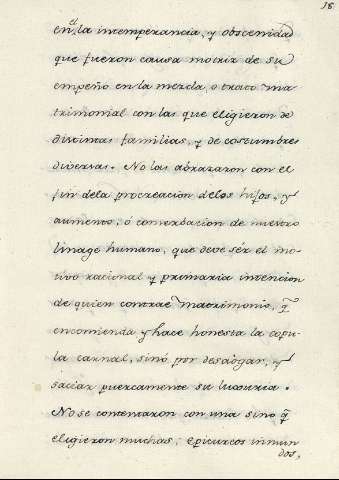 18.
en^el la intemperancia, y obscenidad
que fueron causa motriz de su
empeño en la mezcla, o trato ma
trimonial con las que eligieron de
distintas familias, y de costumbres
diversas. No las abrazaron con el
fin dela procreacion delos hijos, y
aumento, ó conserbacion de nuestro
linage humano, que deve sér el mo-
tivo racional y primaria intencion
de quien contrae matrimonio, q̃
encomienda y hace honesta la copu-
la carnal, sinó por desaógar, y
saciar puercamente su luxuria.
No se contentaron con una sino q̃
eligieron muchas; epicureos inmun
dos,